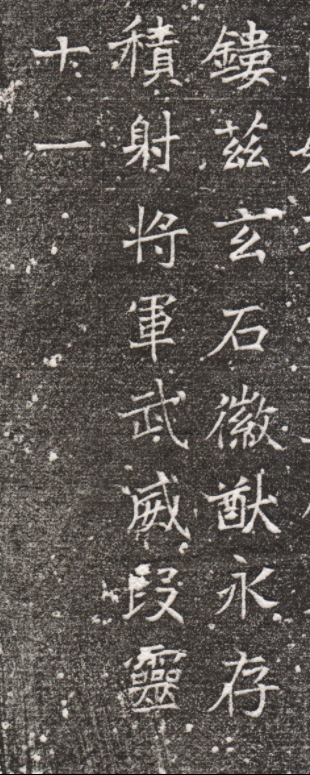 鏤茲玄石徽猷永存
積射將軍武威段靈
十一